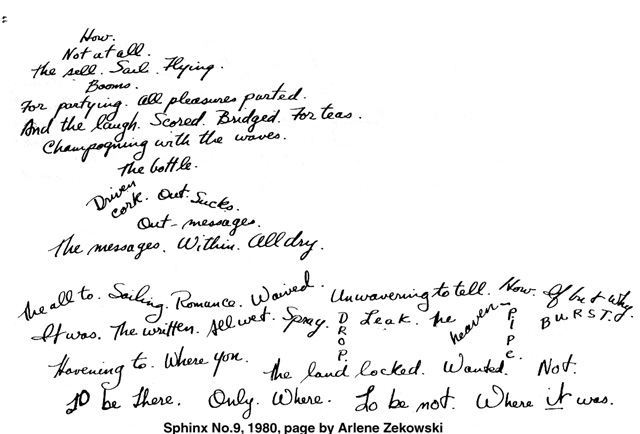 How.
Not at all.
The sell. Sail. Flying.
Booms.
For partying. All pleasures parted.
And the laugh. Scored. Bridged. For teas.
Champagning with the waves.
The bottle.
Driven cork. Out. Sucks.
Out-messages.
The messages. Within. All dry.
The all to. Sailing. Romance. Waived. Unwavering to tell. How. If but why.
It was. The written. All wet. Spray. DROP. Leak. The heaven-PIPE. BURST.
Havening to. Where you. The land locked. Wanted. Not.
TO be there. Only. Where. To be not. Where it was.
Sphinx No.9, 1980, page by Arlene Zekowski